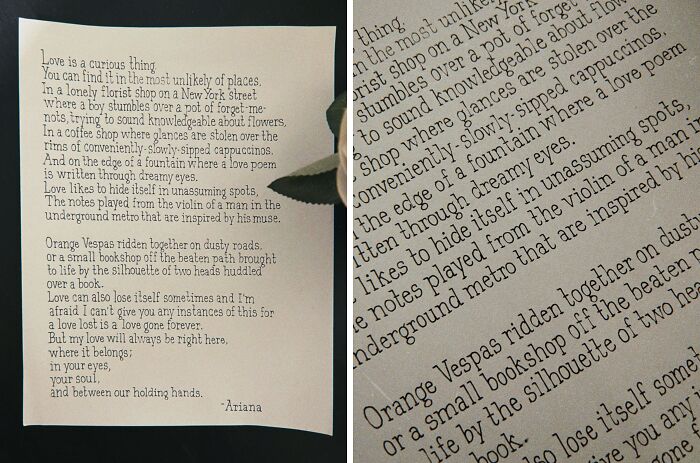 Love is a curious thing.
You can find it in the most unlikely of places.
In a lonely florist shop on a New York street
where a boy stumbles over a pot of forget-me-
nots, trying to sound knowledgeable about flowers,
In a coffee shop where glances are stolen over the
rims of conveniently-slowly-sipped cappuccinos.
And on the edge of a fountain where a love poem
is written through dreamy eyes.
Love likes to hide itself in unassuming spots,
The notes played from the violin of a man in the
underground metro that are inspired by his muse.
Orange Vespas ridden together on dusty roads.
or a small bookshop off the beaten path brought
to life by the silhouette of two heads huddled
over a book.
Love can also lose itself sometimes and I'm
afraid I can't give you any instances of this for
a love lost is a love gone forever.
But my love will always be right here,
where it belongs;
in your eyes,
your soul,
and between our holding hands.
-Ariana
thing.
in the most unlikely
florist shop on a New York
stumbles over a pot of forget
to sound knowledgeable about flow
shop where glances are stolen over the
conveniently-slowly-sipped cappuccinos.
the edge of a fountain where a love poem
itten through dreamy eyes.
likes to hide itself in unassuming spots,
e notes played from the violin of a man in
nderground metro that are inspired by his
Orange Vespas ridden together on dusty
or a small bookshop off the beaten p
life by the silhouette of two hea
book.
so lose itself somet
give you any
gone f